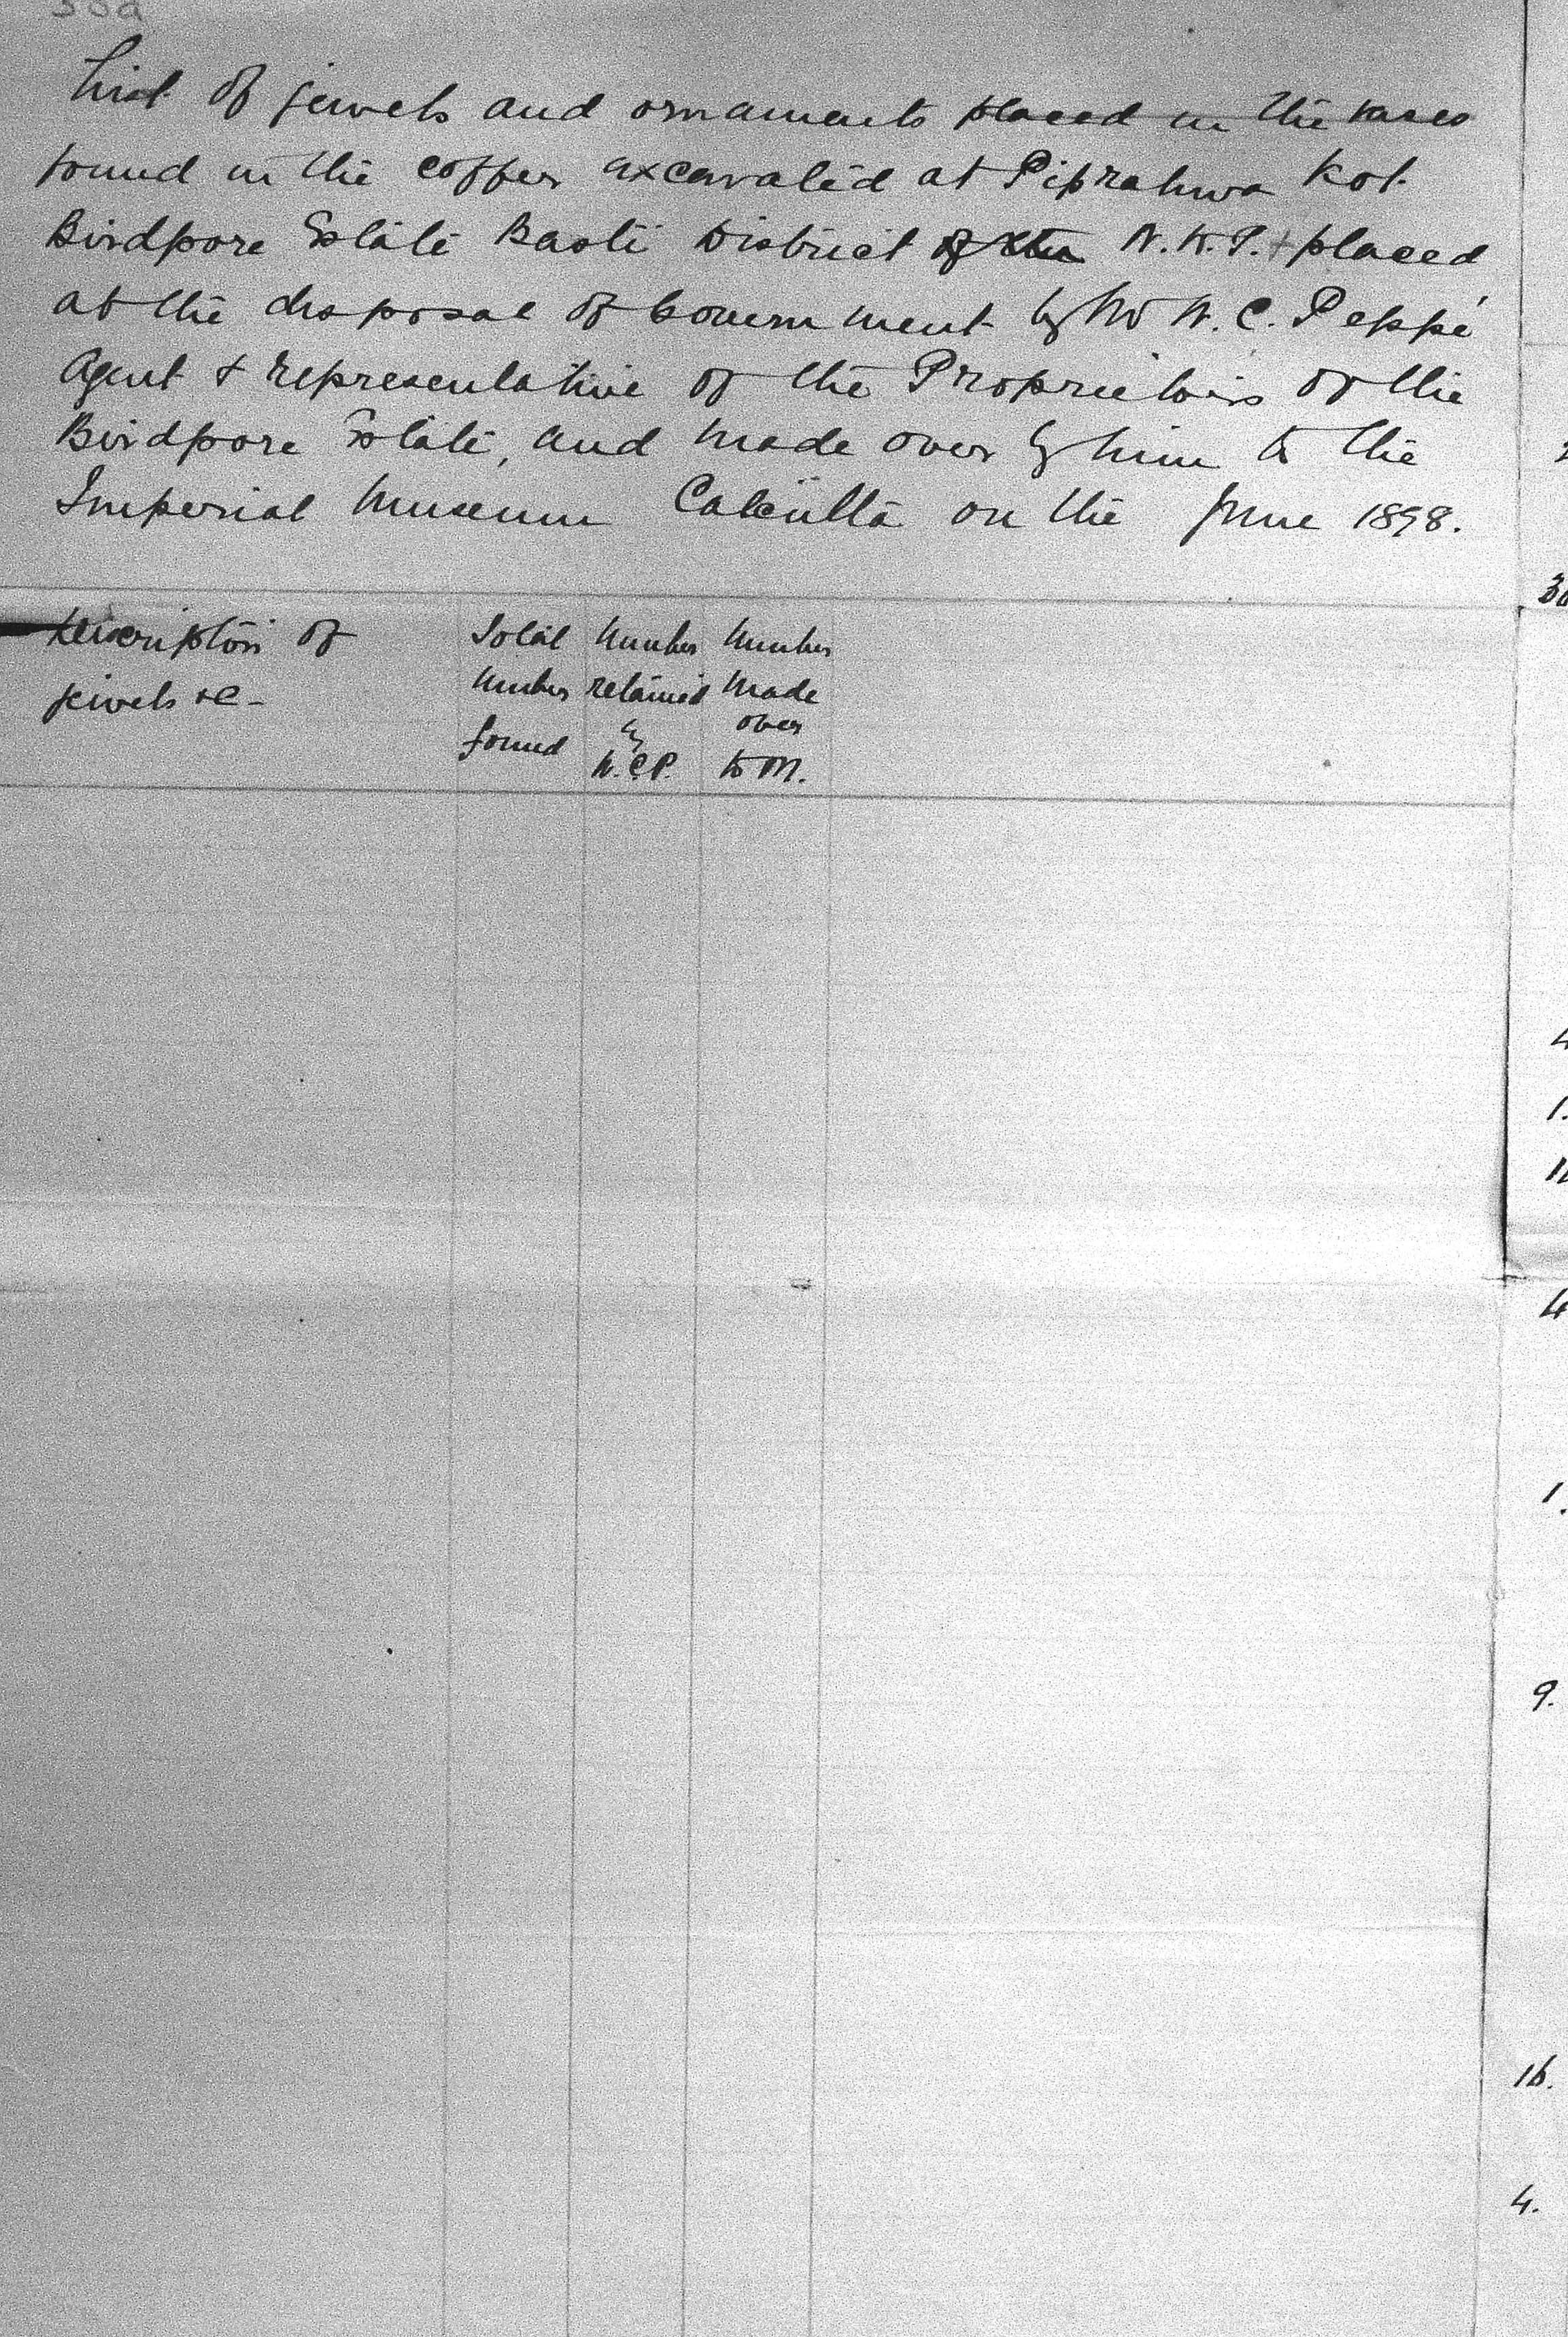 33a
List of jewels and ornaments placed in the vases
found in the coffer excavated at Piprahwa Kot
Birdpore Estate Basti District of the N.W.P. + placed
at the disposal of Government by Mr W. C. Peppé
Agent & representative of the Proprietors of the
Birdpore Estate, and made over by him to the
Imperial Museum Calcutta on the June 1898.
Description of
jewels &c -
Total
number
found
Number
retained
by
W.C.P.
Number
made
over
to M.
30
4
1.
4
1.
9.
16.
4.